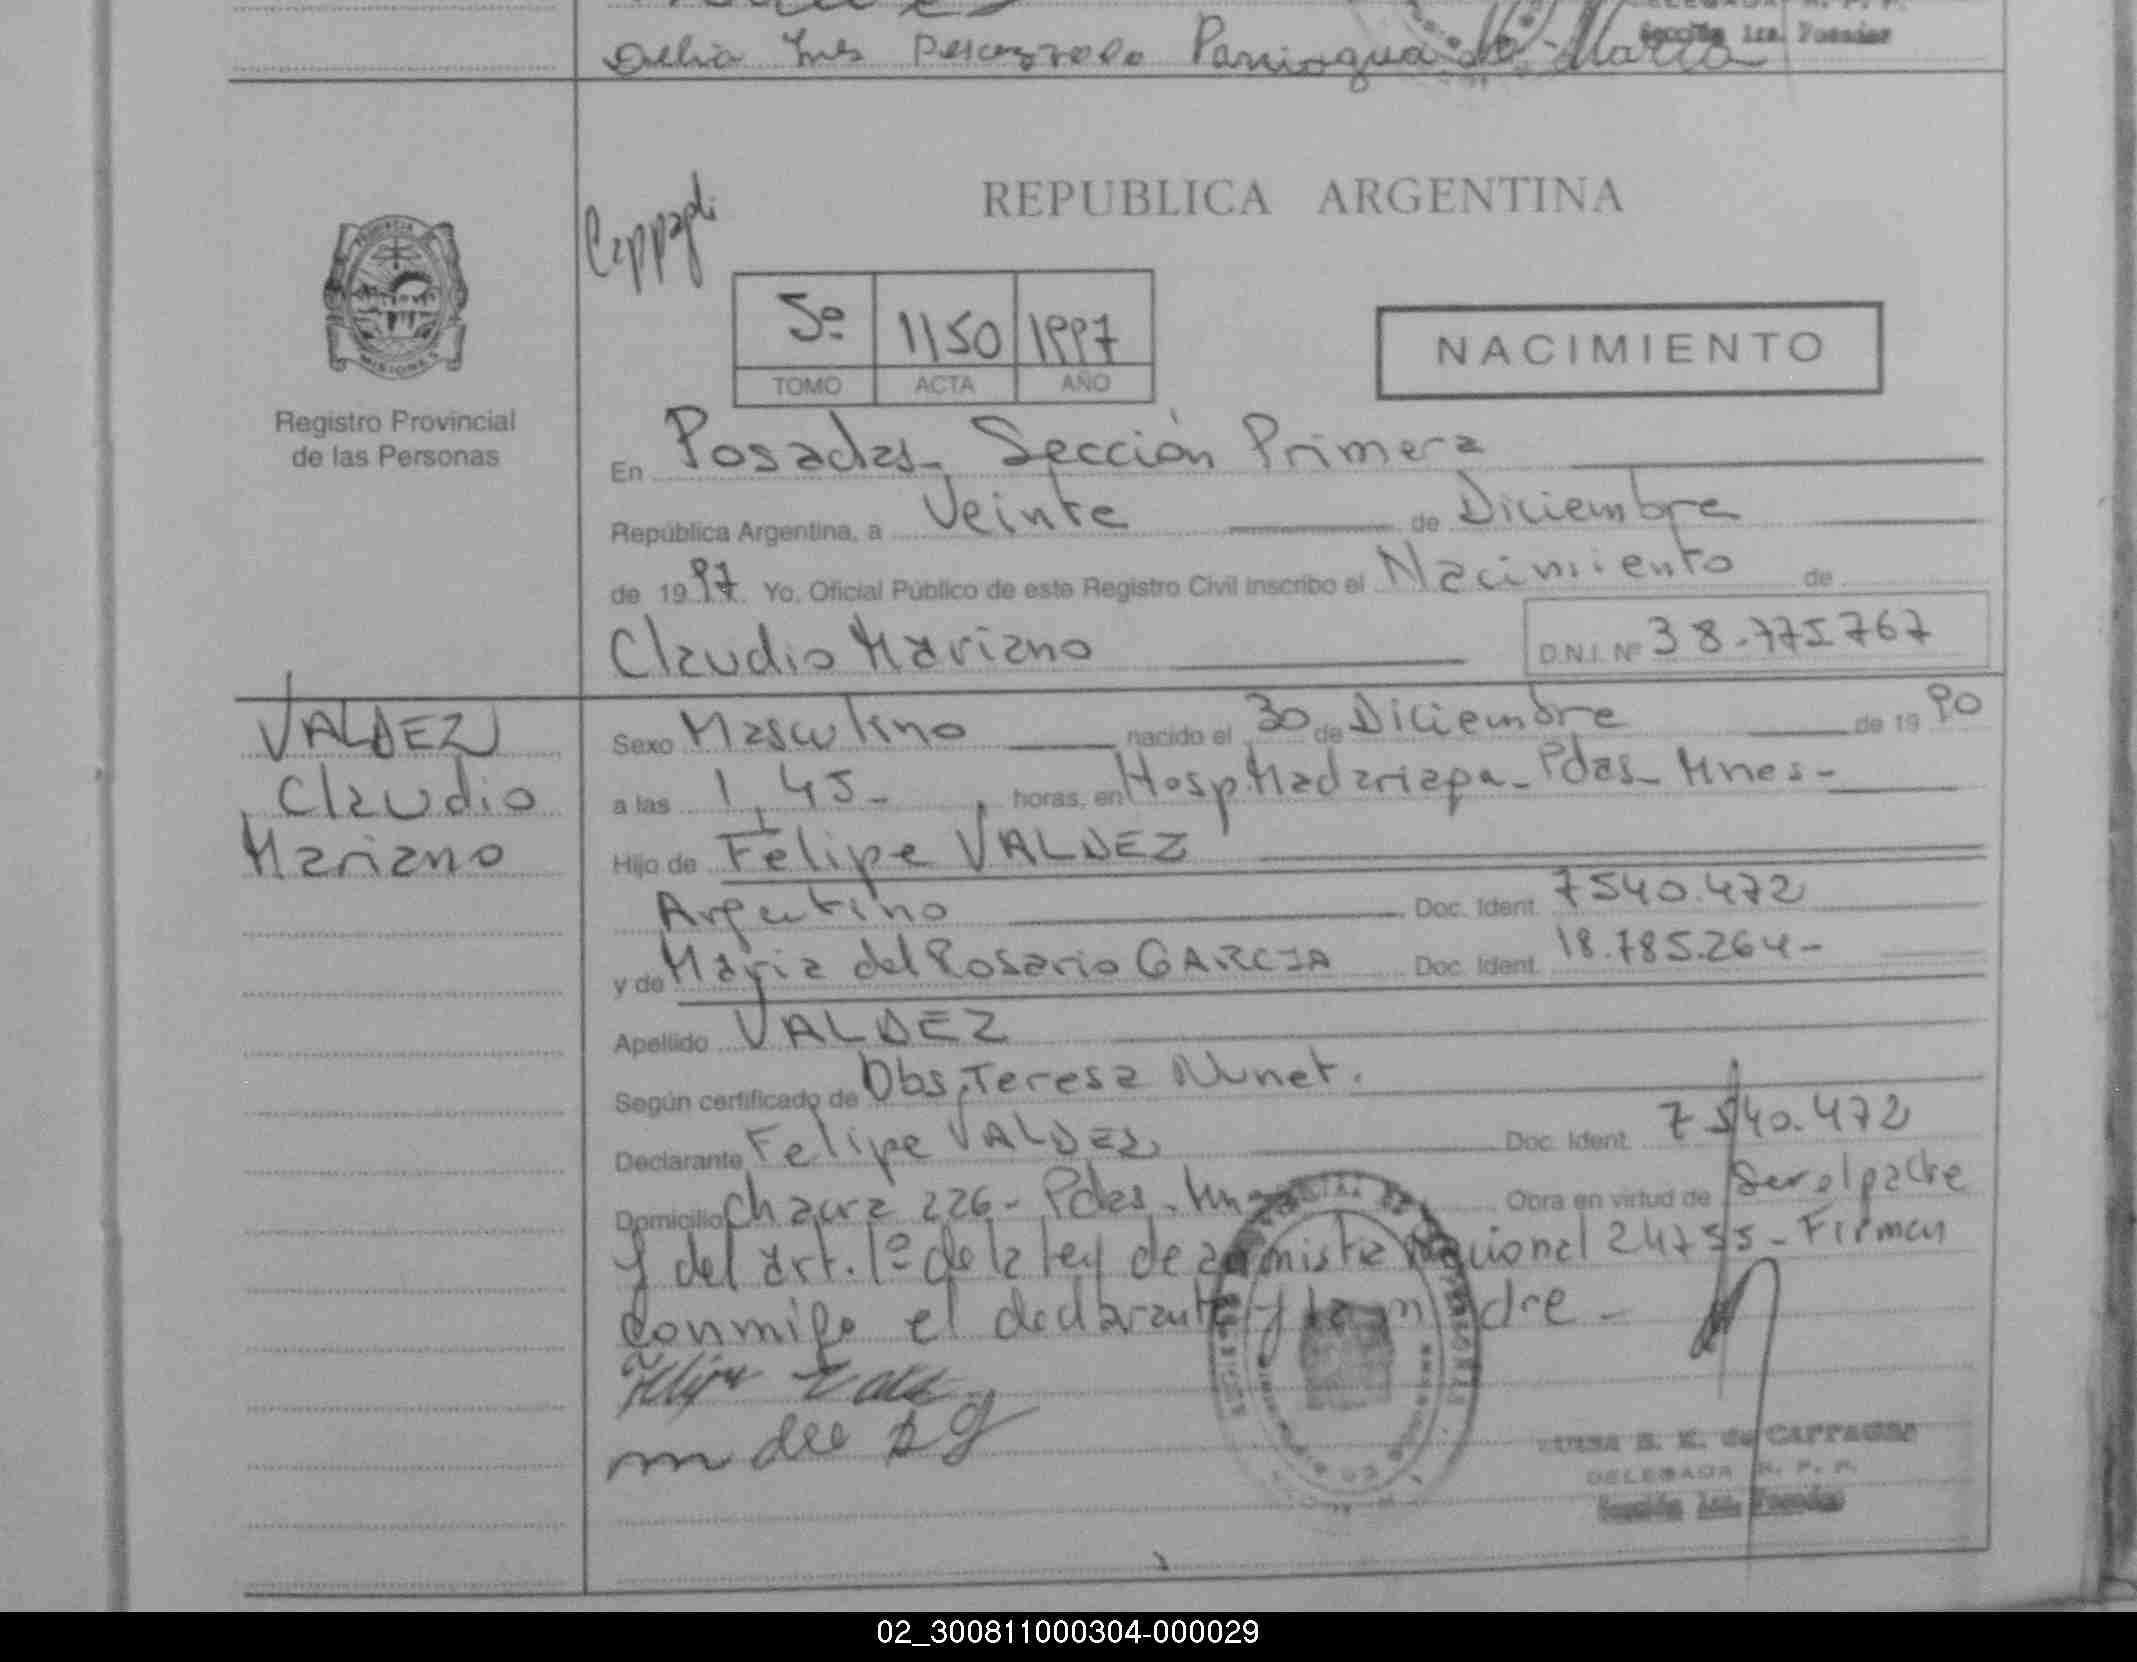 Delia Ines Pescazzolo Paniagua de Marca
Sección 1ra. Posadas
REPUBLICA ARGENTINA
5º 1150 1997
TOMO ACTA AÑO
NACIMIENTO
MISIONES
Registro Provincial
de las Personas
En Posadas - Sección Primera
República Argentina, a Veinte de Diciembre
de 1997. Yo, Oficial Público de este Registro Civil inscribo el Nacimiento de
Claudio Mariano D.N.I. Nº 38.775767
VALDEZ
Claudio
Mariano
Sexo Masculino nacido el 30 de Diciembre de 1990
a las 1,45- horas, en Hosp. Madariaga - Pdas - Mnes -
Hijo de Felipe VALDEZ
Argentino Doc. Ident. 7540.472
y de Maria del Rosario GARCIA Doc. Ident. 18.785.264-
Apellido VALDEZ
Según certificado de Obs. Teresa Nunet.
Declarante Felipe VALDEZ Doc. Ident. 7540.472
Domicilio Chacra 226 - Pdas - Mnes Obra en virtud de Ser el padre
y del art. 1º de la ley de amnistia nacional 24755 - Firman
conmigo el declarante y la madre -
LUISA B. K. de CAPPAGLI
DELEGADA R. P. P.
Sección 1ra. Posadas
02_300811000304-000029